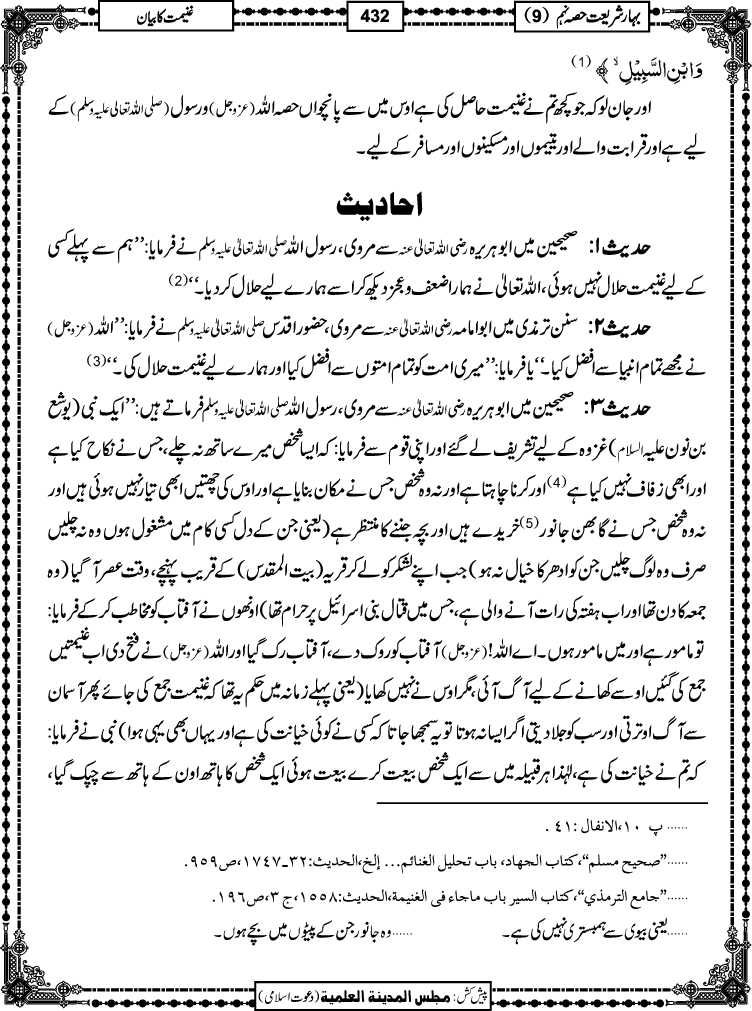 بہارِ شریعت حصہ نہم (9)
432
غنیمت کا بیان
وَابْنِ السَّبِیْلِ ۙ ﴾ (1)
اور جان لو کہ جو کچھ تم نے غنیمت حاصل کی ہے اوس میں سے پانچواں حصہ اﷲ (عزوجل) و رسول (صلی اللہ تعالیٰ علیہ وسلم) کے
لیے ہے اور قرابت والے اور یتیموں اور مسکینوں اور مسافر کے لیے۔
احادیث
حدیث ۱: صحیحین میں ابوہریرہ رضی اللہ تعالیٰ عنہ سے مروی، رسول اﷲ صلی اللہ تعالیٰ علیہ وسلم نے فرمایا: ’’ہم سے پہلے کسی
کے لیے غنیمت حلال نہیں ہوئی، اﷲ تعالیٰ نے ہمارا ضعف و عجز دیکھ کر اسے ہمارے لیے حلال کر دیا۔‘‘ (2)
حدیث ۲: سنن ترمذی میں ابوامامہ رضی اللہ تعالیٰ عنہ سے مروی، حضور اقدس صلی اللہ تعالیٰ علیہ وسلم نے فرمایا: ’’اﷲ (عزوجل)
نے مجھے تمام انبیا سے افضل کیا۔‘‘ یا فرمایا: ’’میری امت کو تمام امتوں سے افضل کیا اور ہمارے لیے غنیمت حلال کی۔‘‘ (3)
حدیث ۳: صحیحین میں ابوہریرہ رضی اللہ تعالیٰ عنہ سے مروی، رسول اﷲ صلی اللہ تعالیٰ علیہ وسلم فرماتے ہیں: ’’ایک نبی (یوشع
بن نون علیہ السلام) غزوہ کے لیے تشریف لے گئے اور اپنی قوم سے فرمایا: کہ ایسا شخص میرے ساتھ نہ چلے، جس نے نکاح کیا ہے
اور ابھی زفاف نہیں کیا ہے (4) اور کرنا چاہتا ہے اور نہ وہ شخص جس نے مکان بنایا ہے اور اوس کی چھتیں ابھی تیار نہیں ہوئی ہیں اور
نہ وہ شخص جس نے گابھن جانور (5) خریدے ہیں اور بچہ جننے کا منتظر ہے (یعنی جن کے دل کسی کام میں مشغول ہوں وہ نہ چلیں
صرف وہ لوگ چلیں جن کو ادھر کا خیال نہ ہو) جب اپنے لشکر کو لے کر قریہ (بیت المقدس) کے قریب پہنچے، وقت عصر آگیا (وہ
جمعہ کا دن تھا اور اب ہفتہ کی رات آنے والی ہے، جس میں قتال بنی اسرائیل پر حرام تھا) اونھوں نے آفتاب کو مخاطب کرکے فرمایا:
تو مامور ہے اور میں مامور ہوں۔ اے اﷲ! (عزوجل) آفتاب کو روک دے، آفتاب رک گیا اور اﷲ (عزوجل) نے فتح دی اب غنیمتیں
جمع کی گئیں اوسے کھانے کے لیے آگ آئی، مگر اوس نے نہیں کھایا (یعنی پہلے زمانہ میں حکم یہ تھا کہ غنیمت جمع کی جائے پھر آسمان
سے آگ اوترتی اور سب کو جلا دیتی اگر ایسا نہ ہوتا تو یہ سمجھا جاتا کہ کسی نے کوئی خیانت کی ہے اور یہاں بھی یہی ہوا) نبی نے فرمایا:
کہ تم نے خیانت کی ہے، لہٰذا ہر قبیلہ میں سے ایک شخص بیعت کرے بیعت ہوئی ایک شخص کا ہاتھ اون کے ہاتھ سے چپک گیا،
...... پ ۱۰، الانفال: ٤١ .
......’’صحیح مسلم‘‘، کتاب الجهاد، باب تحليل الغنائم... إلخ، الحديث: ٣٢ـ١٧٤٧، ص٩٥٩.
......’’جامع الترمذي‘‘، کتاب السير باب ماجاء في الغنيمة، الحديث: ١٥٥٨، ج٣، ص١٩٦.
......یعنی بیوی سے ہمبستری نہیں کی ہے۔ ......وہ جانور جن کے پیٹوں میں بچے ہوں۔
پیش کش: مجلس المدینۃ العلمیۃ (دعوتِ اسلامی)